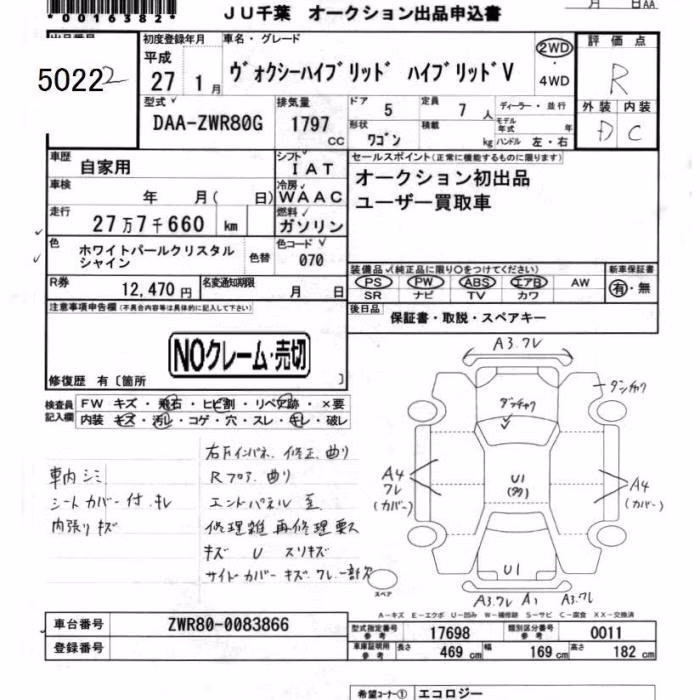 *0016382*
JU千葉 オークション出品申込書
月 日AA
出品番号
50222
初度登録年月
平成
27 1月
車名・グレード
ヴォクシーハイブリッド ハイブリッドV
2WD
4WD
評価点
R
外装 内装
D C
型式
DAA-ZWR80G
排気量
1797
CC
ドア
5
定員
7 人
形状
ワゴン
積載
kg
ディーラー・並行
モデル年式 年
ハンドル 左・右
車歴
自家用
シフト
IAT
車検
年 月( 日)
冷房
WAAC
走行
27万7千660 km
燃料
ガソリン
色
ホワイトパールクリスタル
シャイン
色替
色コード
070
R券
12,470円
名変通知期限
月 日
セールスポイント(正常に機能するものに限ります)
オークション初出品
ユーザー買取車
装備品(純正品に限り○をつけてください)
PS PW ABS エアB AW
SR ナビ TV カワ
新車保証書
有・無
後日品
保証書・取説・スペアキー
注意事項申告欄(不具合内容等は具体的に記入して下さい)
NOクレーム・売切
修復歴 有〔箇所 〕
検査員
記入欄
FW キズ・飛石・ヒビ割・リペア跡・×要
内装 キズ・汚レ・コゲ・穴・スレ・キレ・破レ
車内シミ
シートカバー付.キレ
内張りキズ
右Fインパネ.修正.曲り
Rフロア.曲り
エンドパネル 歪
修理雑 再修理要ス
キズ U スリキズ
サイドカバー キズ ワレ 一部欠
A3.ワレ
ダンチャク
ダッチャク
A4
ワレ
(カバー)
U1
A4
(カバー)
U1
スペア
A3.ワレ A1 A3.ワレ
A-キズ E-エクボ U-凹み W-補修跡 S-サビ C-腐食 XX-交換済
車台番号
ZWR80-0083866
登録番号
型式指定番号
参考
17698
類別区分番号
参考
0011
車庫証明用
参考
長さ 469 cm 幅 169 cm 高さ 182 cm
希望コーナー① エコロジー